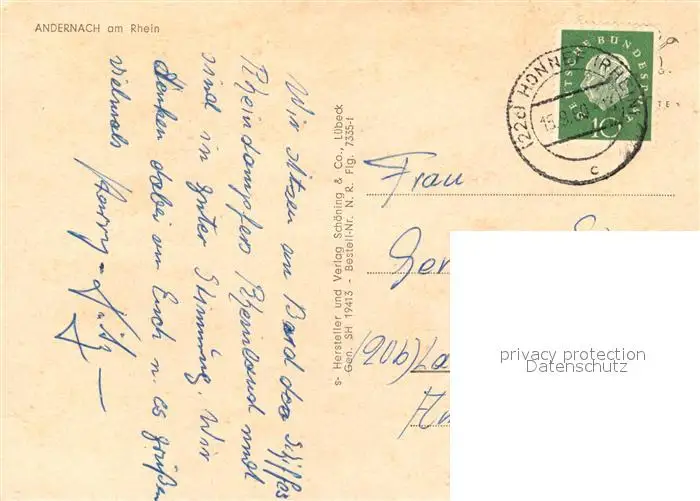 ANDERNACH am Rhein
Wir sitzen an Bord des Schiffes
Rheindampfers Rheinland und
sind in guter Stimmung. Wir
denken dabei an Euch u. es grüßen
vielmals
s- Hersteller und Verlag Schöning & Co., Lübeck
Gen. SH 19413 - Bestell-Nr. N. R. Flg. 7335-I
DEUTSCHE BUNDESPOST
10
(22c) HONNEF (RHEIN)
c
Frau
(20b)
privacy protection
Datenschutz